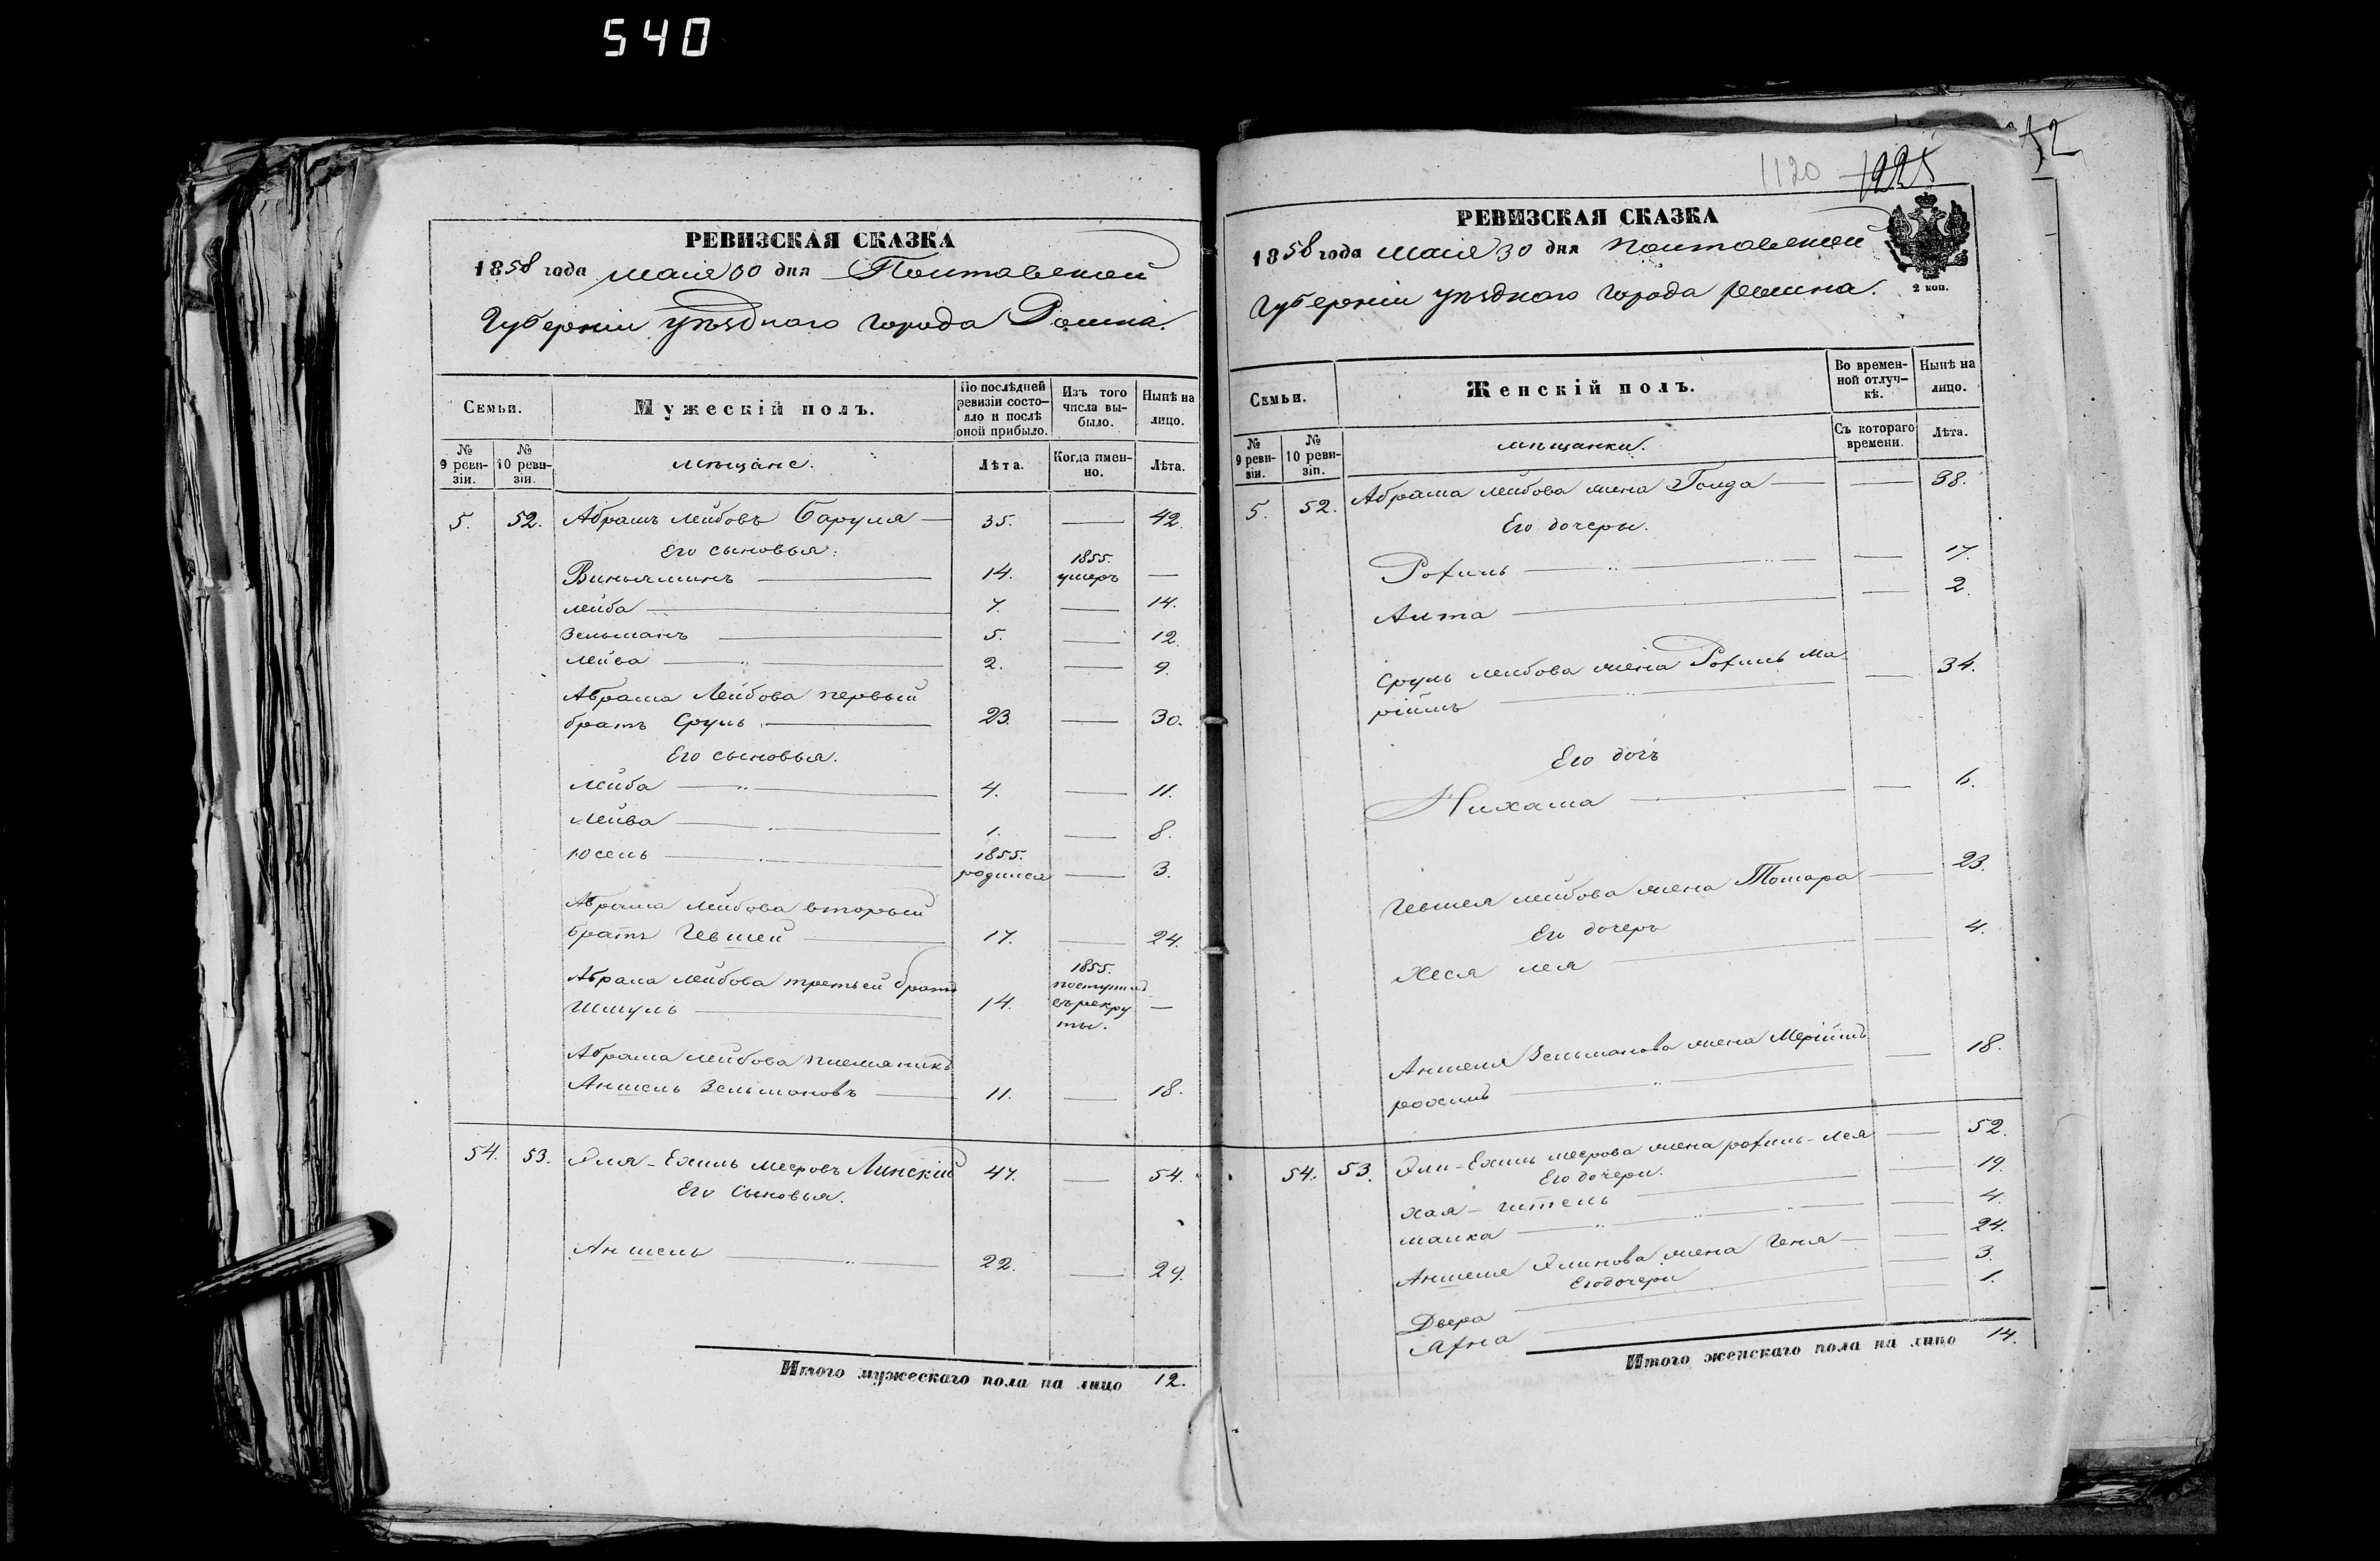 540
РЕВИЗСКАЯ СКАЗКА
1858 года маія 30 дня Полтавской
Губерніи уѣзднаго города Ромна.
Семьи.
Мужескій полъ.
По послѣдней ревизіи состояло и послѣ оной прибыло.
Изъ того числа выбыло.
Нынѣ на лицо.
№ 9 ревизіи.
№ 10 ревизіи.
мѣщане.
Лѣта.
Когда именно.
Лѣта.
5. 52. Абрамъ Лейбовъ Баруля 35. — 42.
Его сыновья:
Виньяминъ 14. 1855. умеръ —
Лейба 7. — 14.
Зельманъ 5. — 12.
Лейва 2. — 9.
Абрама Лейбова первый
братъ Сруль 23. — 30.
Его сыновья.
Лейба 4. — 11.
Лейва 1. — 8.
Юсель 1855. родился — 3.
Абрама Лейбова вторый
братъ Гевшей 17. — 24.
Абрама Лейбова третьей братъ
Шмуль 14. 1855. поступилъ въ рекруты. —
Абрама Лейбова племяникъ
Аншель Зельмановъ 11. — 18.
54. 53. Эля-Ехиль Мееровъ Линскій 47. — 54.
Его сыновья.
Аншель 22. — 29.
Итого мужескаго пола на лицо 12.
1120 1225
52
РЕВИЗСКАЯ СКАЗКА
1858 года маія 30 дня Полтавской
Губерніи уѣзднаго города Ромна.
2 коп.
Семьи.
Женскій полъ.
Во временной отлучкѣ.
Нынѣ на лицо.
№ 9 ревизіи.
№ 10 ревизіи.
мѣщанки.
Съ котораго времени.
Лѣта.
5. 52. Абрама Лейбова жена Голда — 38.
Его дочеры.
Рохиль — 17.
Алта — 2.
Сруль Лейбова жена Рохиль Ма — 34.
ріимъ
Его дочь
Нихама — 6.
Гевшея Лейбова жена Томара — 23.
Его дочерь
Хеся Лея 4.
Аншеля Зельманова жена Меріимъ — 18.
54. 53. Эли-Ехиль Меерова жена Рохиль-Лея — 52.
Его дочери.
Хая-Гитель — 19.
Малка — 4.
Аншеля Элинова жена Геня — 24.
Его дочери
Двера — 3.
Яхна — 1.
Итого женскаго пола на лицо 14.